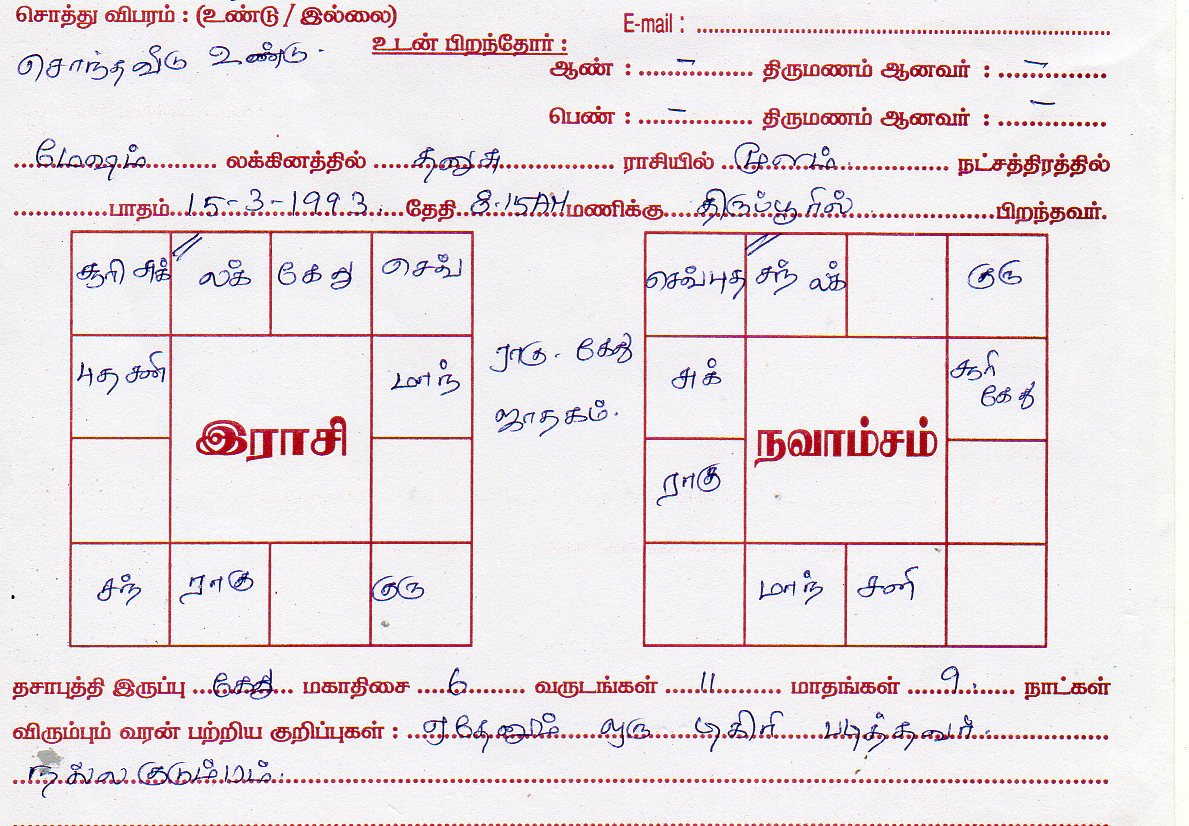 சொத்து விபரம் : (உண்டு / இல்லை)
E-mail : ........................
சொந்தவீடு உண்டு.
உடன் பிறந்தோர் :
ஆண் : ......–......... திருமணம் ஆனவர் : ....–............
பெண் : ......–......... திருமணம் ஆனவர் : ....–............
...மேஷம்.......... லக்கினத்தில் .....தனுசு.............. ராசியில் ..மூலம்............... நட்சத்திரத்தில்
..............பாதம்..15-3-1993.....தேதி..8.15AM மணிக்கு....திருப்பூரில்..................பிறந்தவர்.
சூரி சுக் லக் கேது செவ்
புத சனி மாந்
இராசி
சந் ராகு குரு
ராகு - கேது
ஜாதகம்.
செவ் புத சந் லக் குரு
சுக் சூரி கேது
நவாம்சம்
ராகு
மாந் சனி
தசாபுத்தி இருப்பு ...கேது... மகாதிசை ....6........ வருடங்கள் .....11........ மாதங்கள் .....9...... நாட்கள்
விரும்பும் வரன் பற்றிய குறிப்புகள் : ..ஏதேனும் ஒரு டிகிரி படித்தவர்..............
நல்ல குடும்பம்.